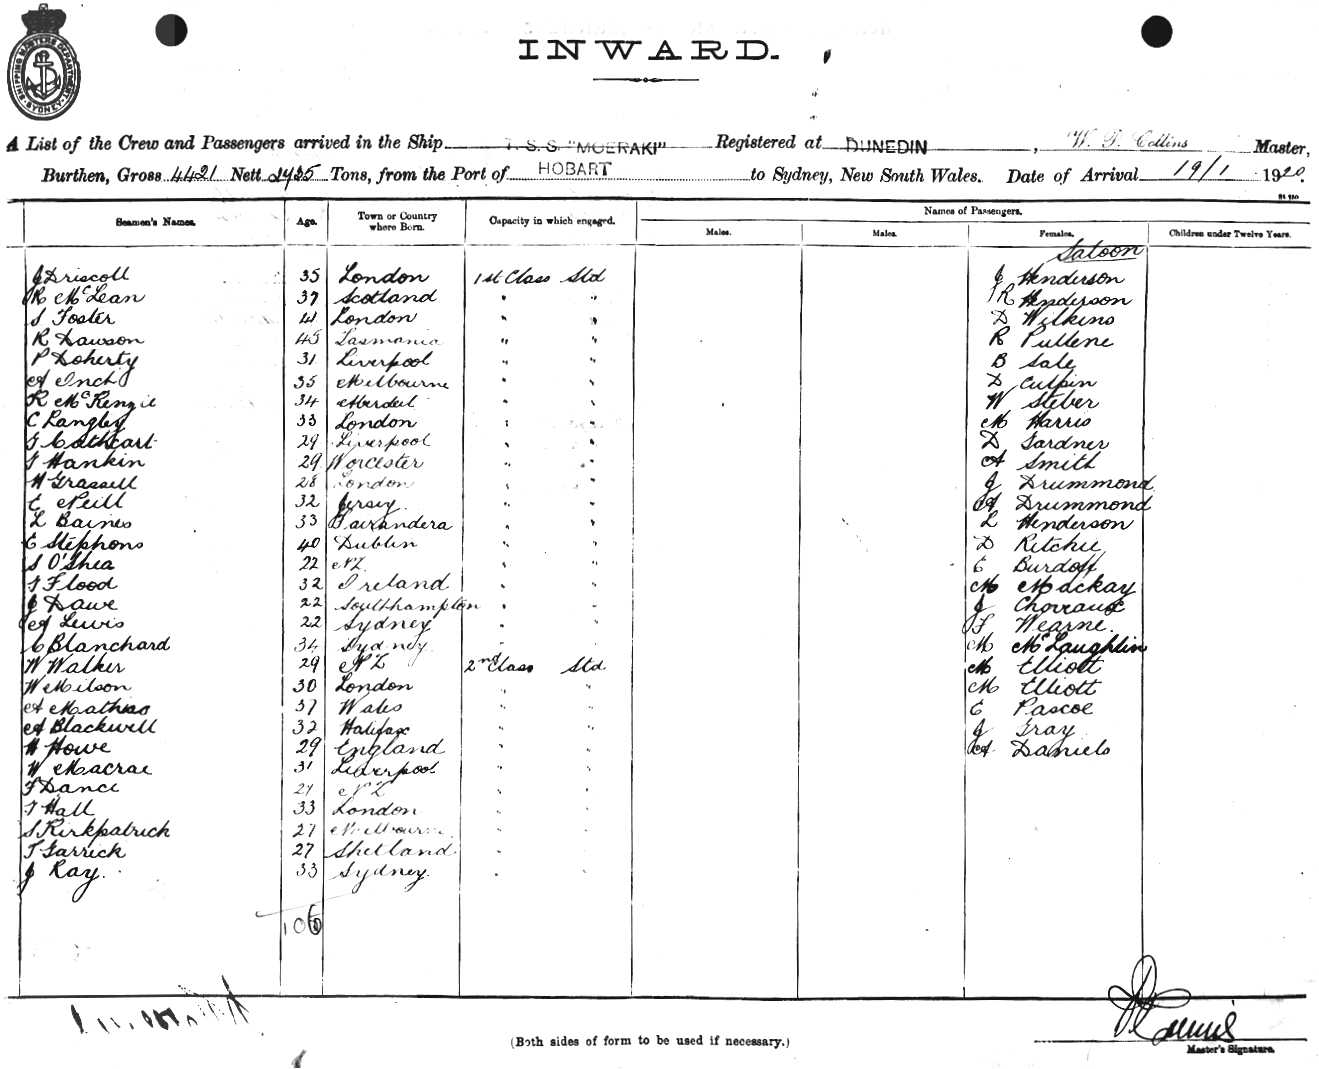 SHIPPING MASTERS DEPARTMENT SYDNEY
INWARD.
A List of the Crew and Passengers arrived in the Ship T. S. S. "MOERAKI" Registered at DUNEDIN, Master,
Burthen, Gross 4421 Nett Tons, from the Port of HOBART to Sydney, New South Wales. Date of Arrival 19/1 1920.
Seamen's Names. Age. Town or Country where Born. Capacity in which engaged. Names of Passengers.
Males. Males. Females. Children under Twelve Years.
Saloon
J Driscoll 35 London 1st Class Std J Henderson
R McLean 37 Scotland " " R Henderson
S Foster 41 London " " D Wilkins
R Dawson 45 Tasmania " " R Pullene
P Doherty 31 Liverpool " " B Sale
A Inch 35 Melbourne " " D Culpin
R McKenzie 34 " " W Steber
C Langley 33 London " " M Harris
T Cathcart 29 Liverpool " " D Gardner
T Hankin 29 Worcester " " A Smith
W Grassell 28 London " " J Drummond
E Neill 32 Jersey " " A Drummond
L Baines 33 " " L Henderson
E Stephens 40 Dublin " " D Ritchie
S O'Shea 22 NZ " " E Burdoff
T Flood 32 Ireland " " M Mackay
J Dawe 22 Southhampton " " J
A Lewis 22 Sydney " " F Wearne
C Blanchard 34 Sydney " " M McLaughlin
W Walker 29 NZ 2nd Class Std M Elliott
W Milson 30 London " " M Elliott
A 37 Wales " " E Pascoe
A Blackwell 32 Halifax " " J Gray
H Howe 29 England " " A Daniels
W Macrae 31 Liverpool " "
F Dance 27 NZ " "
T Hall 33 London " "
S Kirkpatrick 27 Melbourne " "
T Garrick 27 Shetland " "
J Ray. 33 Sydney " "
106
(Both sides of form to be used if necessary.)
Master's Signature.